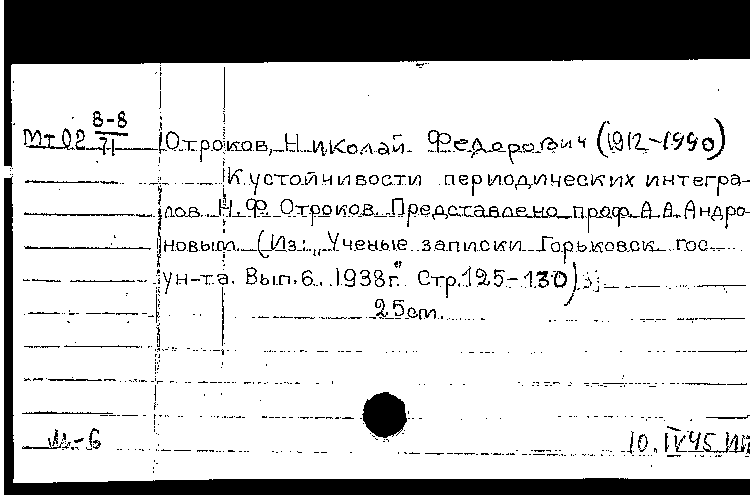 Мт 02 В-8/71
Отроков, Николай Федорович (1912-1990)
К устойчивости периодических интегра-
лов. Н.Ф. Отроков. Представлено проф. А.А. Андро-
новым. (Из: „Ученые записки Горьковск. гос.
ун-та. Вып. 6. 1938г.“ Стр. 125-130)
25 cm.
М-6
10.IV45